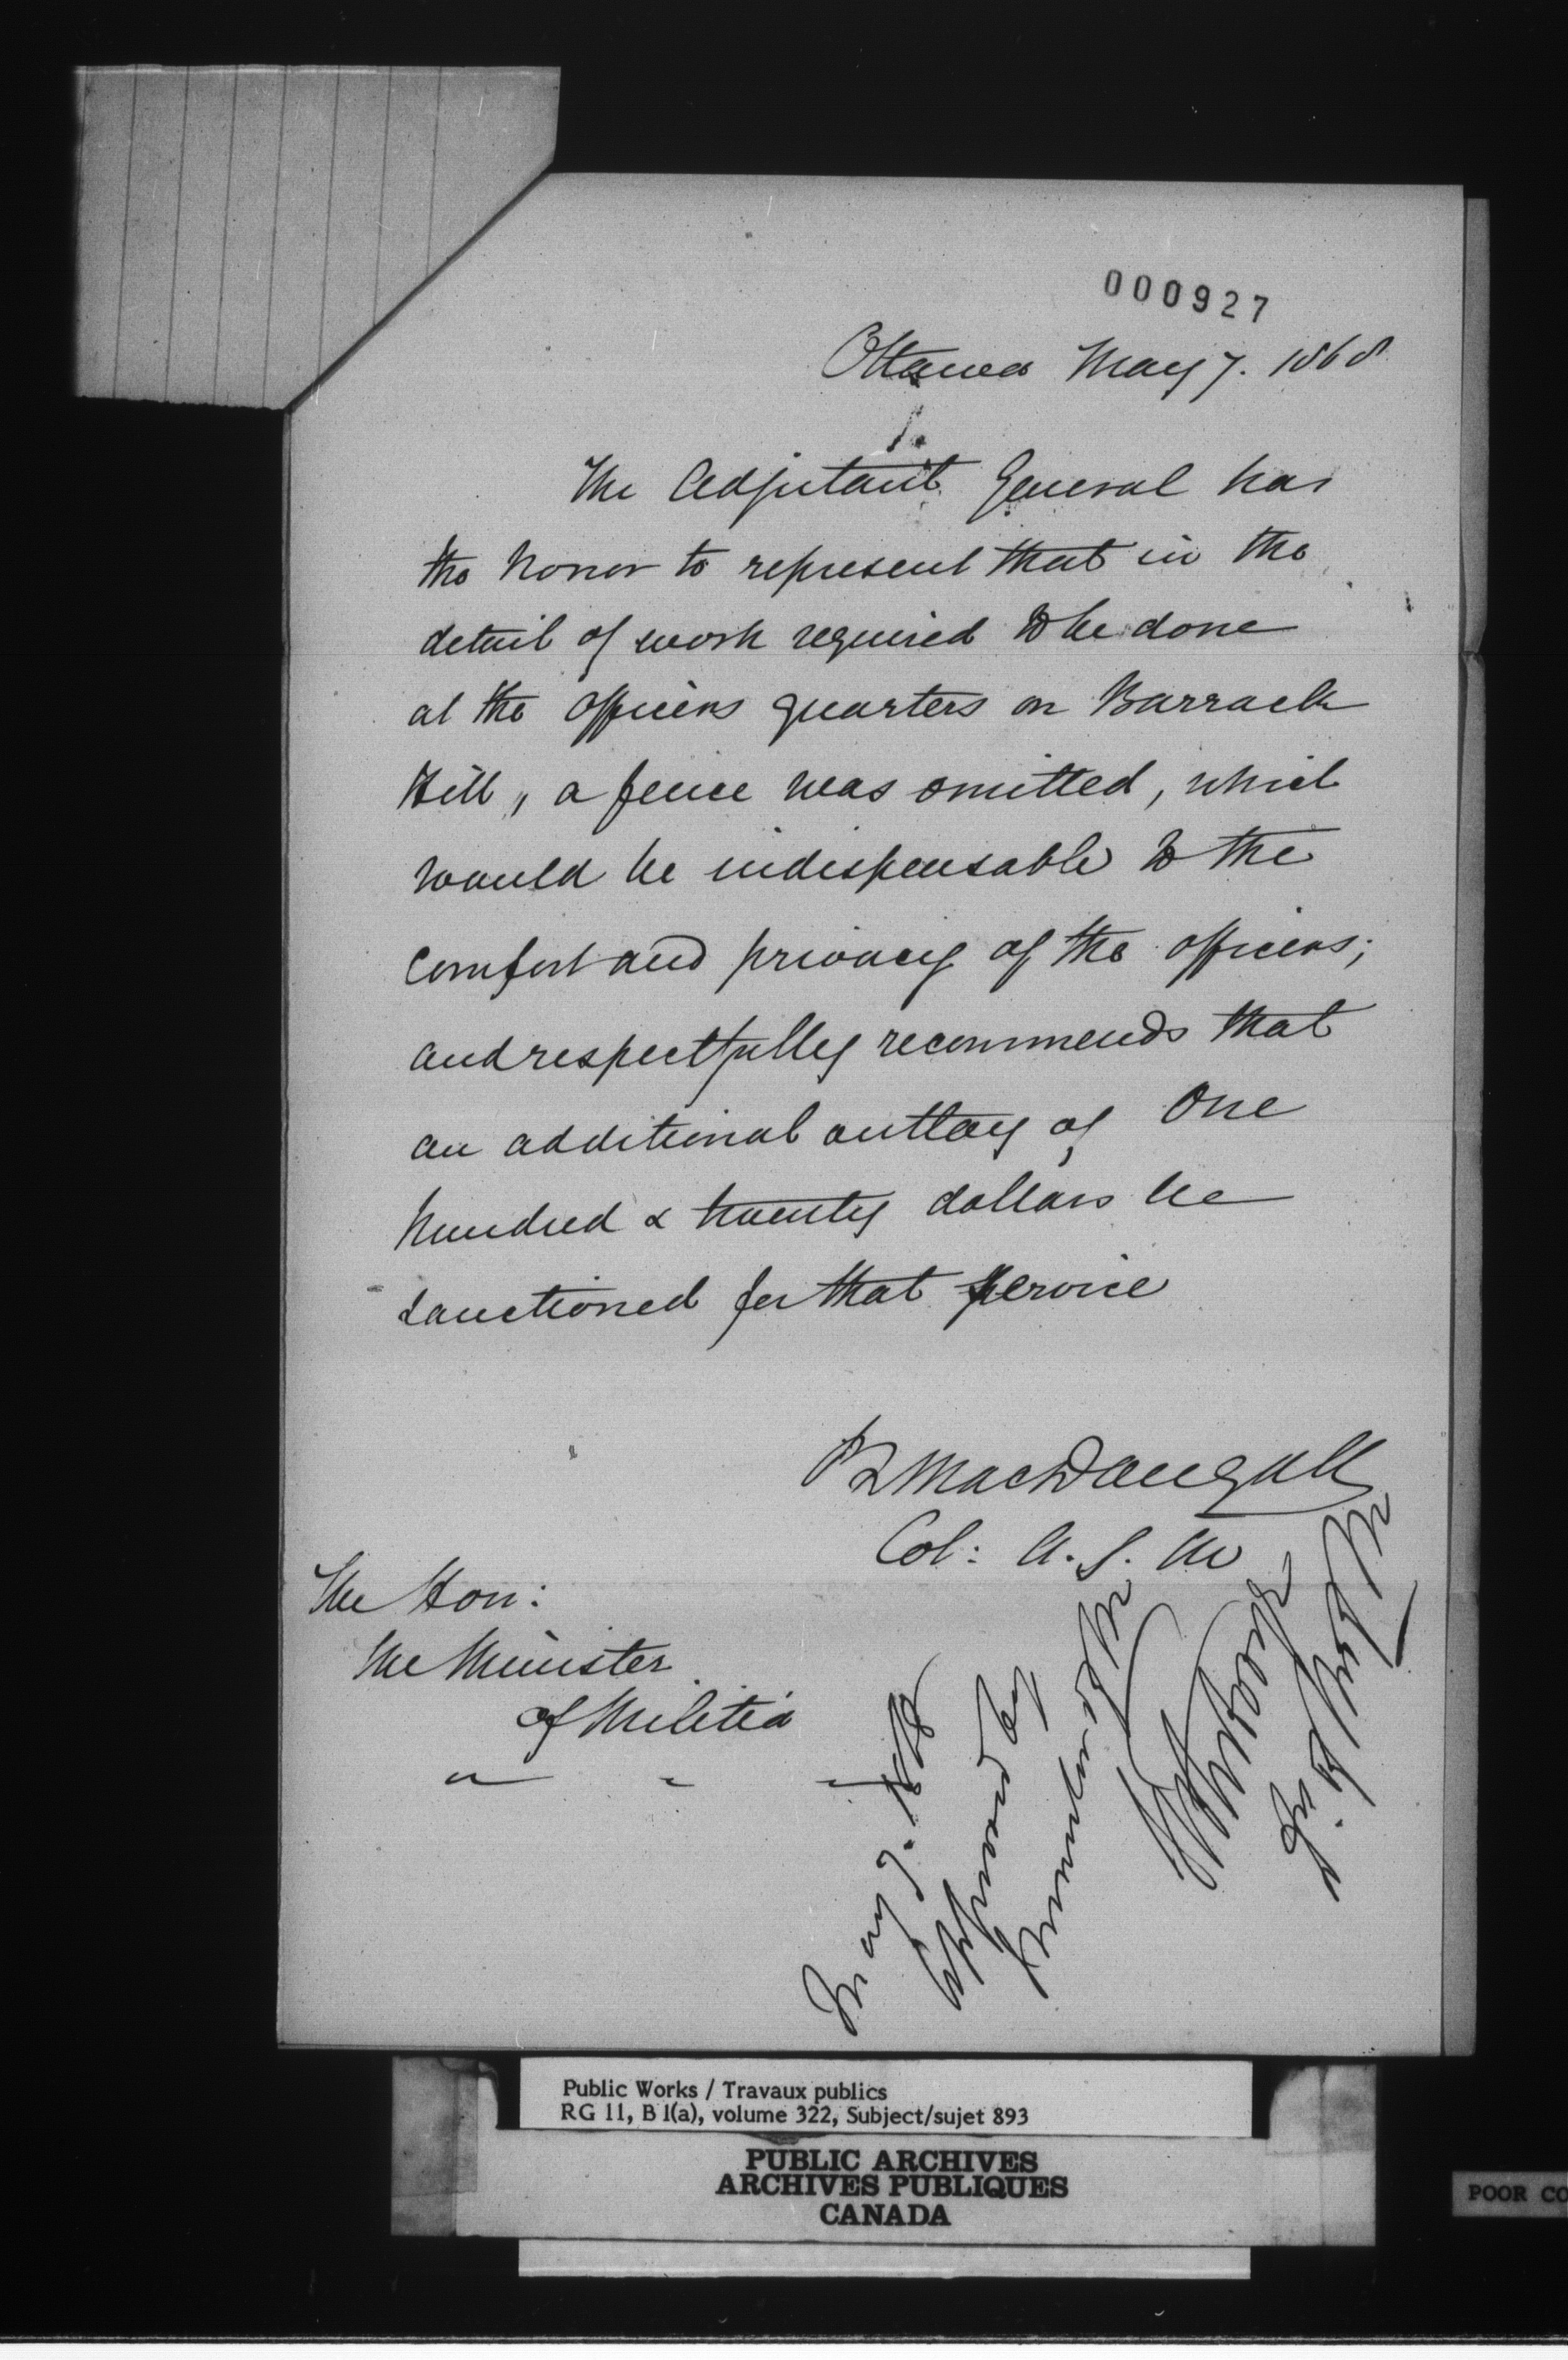 000927
Ottawa May 7. 1868
The Adjutant General has
the honor to represent that in the
detail of work required to be done
at the officers quarters on Barrack
Hill, a fence was omitted, which
would be indispensable to the
comfort and privacy of the officers;
and respectfully recommends that
an additional outlay of One
hundred & twenty dollars be
sanctioned for that service
P L MacDougall
Col: A. G. M
The Hon:
The Minister
of Militia
May 7. 1868
Approved by
Minister of M
Public Works / Travaux publics
RG 11, B 1(a), volume 322, Subject/sujet 893
PUBLIC ARCHIVES
ARCHIVES PUBLIQUES
CANADA
POOR CO